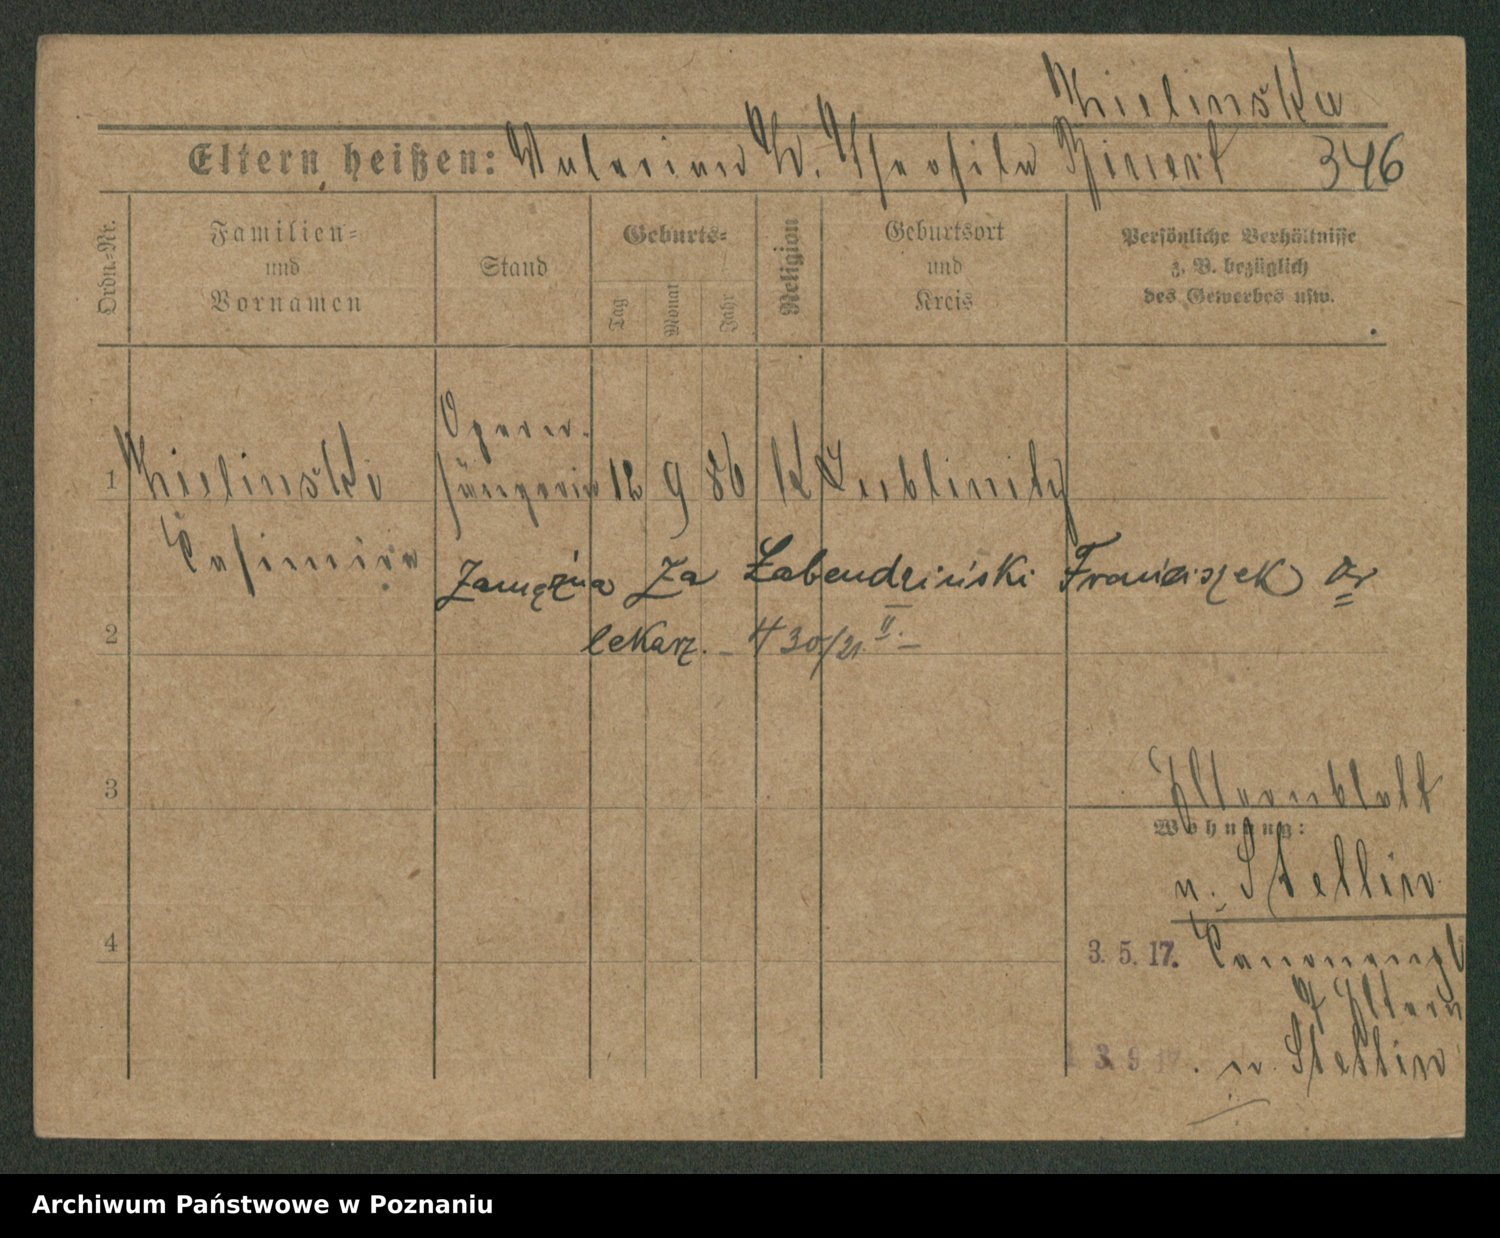 Mielinska
Eltern heißen: Valerian M. Theofila Binert 346
Ordn.-Nr.
Familien-
und
Vornamen
Stand
Geburts-
Tag
Monat
Jahr
Religion
Geburtsort
und
Kreis
Persönliche Verhältnisse
z. B. bezüglich
des Gewerbes usw.
Opern-
1 Mielinski sängerin 12 9 86 K Lublinitz
Casimira
Zamężna za Łabendziński Franciszek dr
2 lekarz. 30/21 II.
3
Elternblatt
Wohnung:
n. Stettin
4
3. 5. 17. Canonenpl
9 Eltern
3. 9 17. n. Stettin
Archiwum Państwowe w Poznaniu